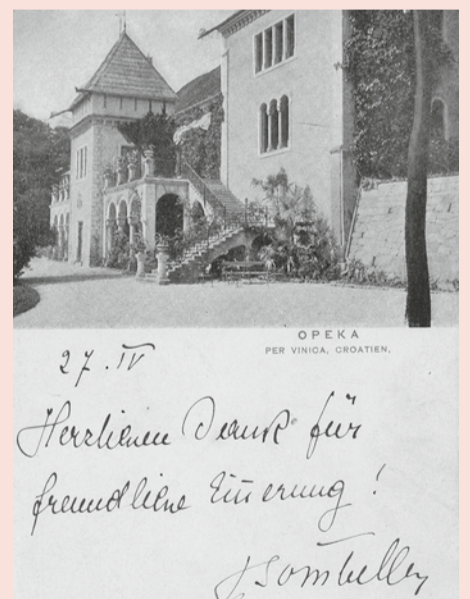 OPEKA
PER VINICA, CROATIEN.
27. IV
Herzlichen Dank für
freundliche Erinnerung!